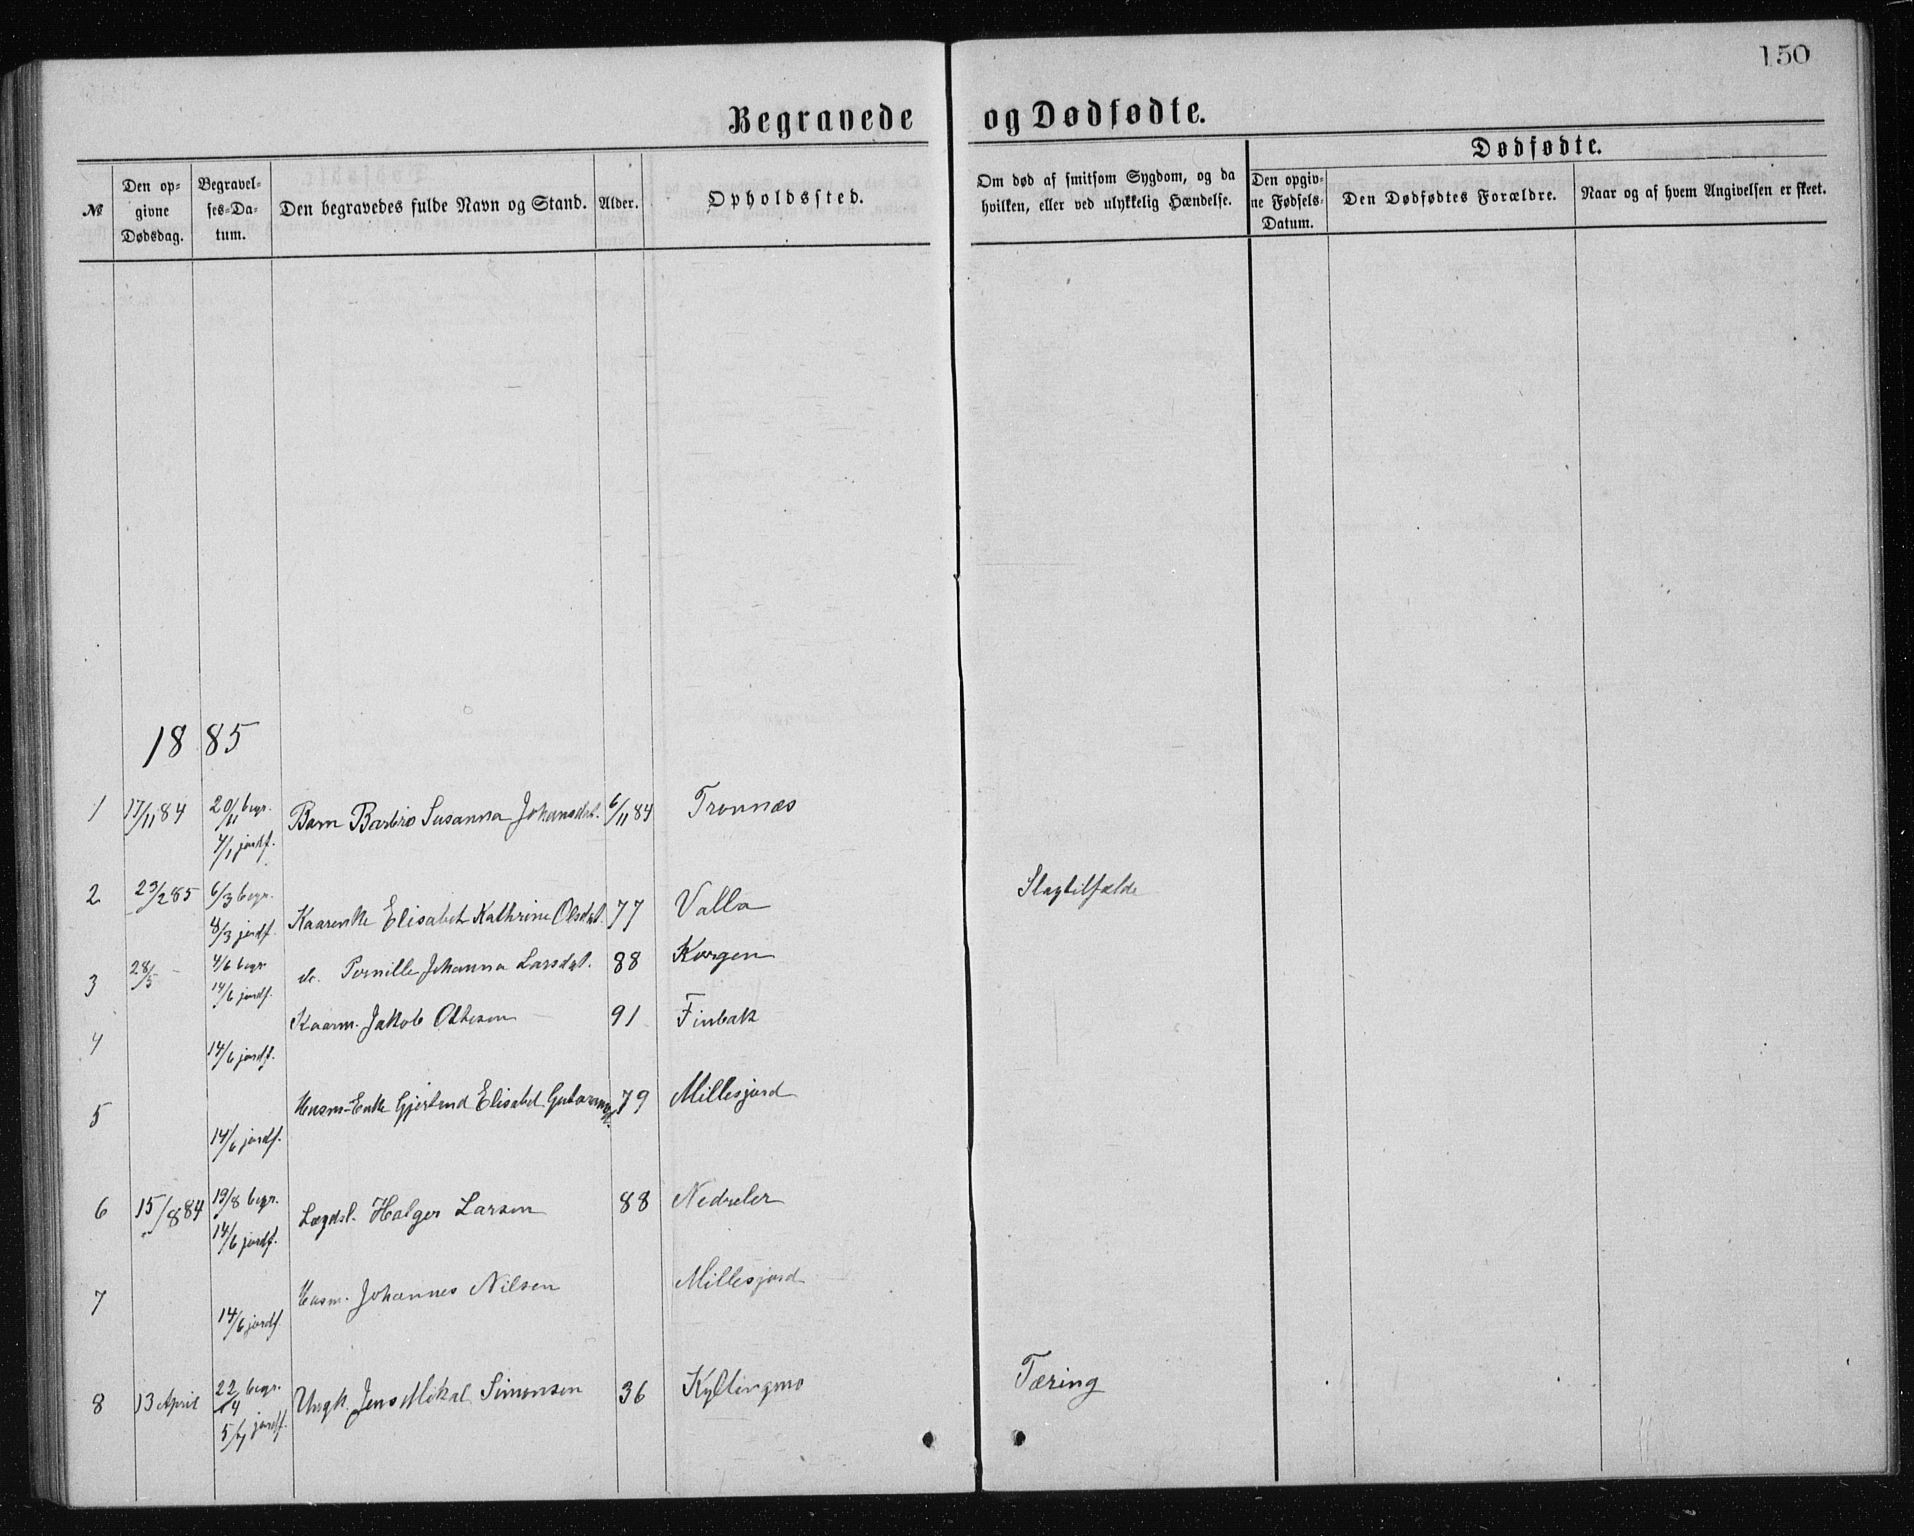 150
Begravede og Dødfødte.
Dødfødte.
№
Den op-
givne
Dødsdag.
Begravel-
ses-Da-
tum.
Den begravedes fulde Navn og Stand.
Alder.
Opholdssted.
Om død af smitsom Sygdom, og da
hvilken, eller ved ulykkelig Hændelse.
Den opgiv-
ne Fødsels-
Datum.
Den Dødfødtes Forældre.
Naar og af hvem Angivelsen er skeet.
1885
1 17/11 84 20/11 begr. Barn Barbro Susanna Johansdat. 6/11 84 Tronnæs
4/1 jordf.
2 23/2 85 6/3 begr. Kaarenke Elisabet Kathrine Olsdat. 77 Valla Slagtilfælde
8/3 jordf.
3 28/5 - 4/6 begr. do. Pernille Johanna Larsdat. 88 Korgen
14/6 jordf.
4 Kaarm. Jakob Ottesen 91 Finbak
14/6 jordf.
5 Husm-Enke Gjertrud Elisabet 79 Millesjord
14/6 jordf.
6 15/8 84 19/8 begr. Lægdsl. Holger Larsen 88 Nedreler
14/6 jordf.
7 Husm. Johannes Nilsen Millesjord
14/6 jordf.
8 13 April 22/4 begr. Ungk. Jens Mikal Simonsen 36 Kyllingmo Tæring
5/7 jordf.